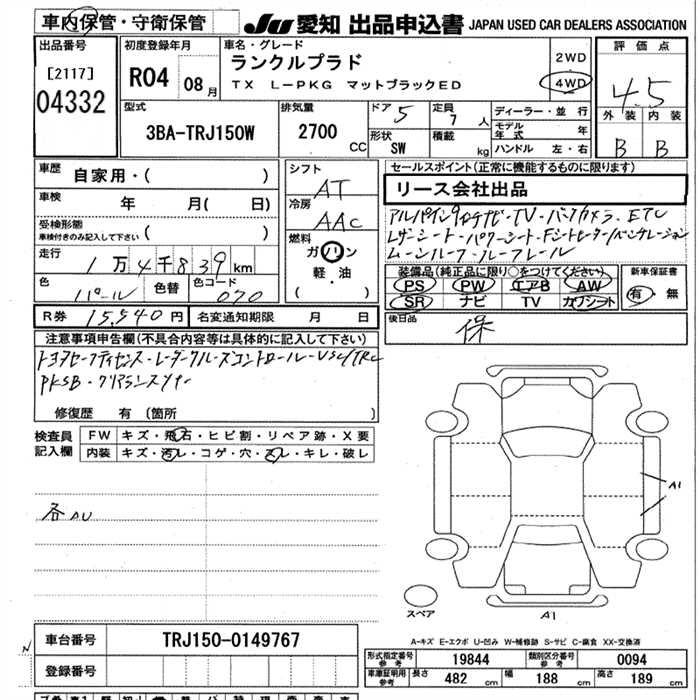 車内保管・守衛保管
JU 愛知 出品申込書 JAPAN USED CAR DEALERS ASSOCIATION
出品番号
[2117]
04332
初度登録年月
R04 08月
車名・グレード
ランクルプラド
TX L-PKG マットブラックED
2WD
4WD
評価点
4.5
外装 内装
B B
型式
3BA-TRJ150W
排気量
2700 CC
ドア 5
形状 SW
定員 7人
積載 kg
ディーラー・並行
モデル年式 年
ハンドル 左・右
車歴 自家用・( )
車検 年 月( 日)
受検形態
車検付きのみ記入して下さい ( )
走行 1万4千839km
色 パール 色替 色コード 070
シフト AT
冷房 AAC
燃料
ガソリン
軽・油
( )
R券 15,540円 名変通知期限 月 日
セールスポイント(正常に機能するものに限ります)
リース会社出品
アルパイン9インチナビ・TV・バックカメラ・ETC
レザーシート・パワーシート・Fシートヒーター/ベンチレーション
ムーンルーフ・ルーフレール
装備品(純正品に限り○をつけてください)
PS PW エアB AW
SR ナビ TV カワシート
新車保証書
有・無
後日品
保
注意事項申告欄(不具合内容等は具体的に記入して下さい)
トヨタセーフティセンス・レーダークルーズコントロール・VSC/TRC
PKSB・クリアランスソナー
修復歴 有(箇所 )
検査員記入欄
FW キズ・飛石・ヒビ割・リペア跡・X要
内装 キズ・汚レ・コゲ・穴・スレ・キレ・破レ
各AU
A1
スペア
A1
A-キズ E-エクボ U-凹み W-補修跡 S-サビ C-腐食 XX-交換済
N
車台番号 TRJ150-0149767
登録番号
形式指定番号 参考 19844 類別区分番号 参考 0094
車庫証明用 参考 長さ 482 cm 幅 188 cm 高さ 189 cm